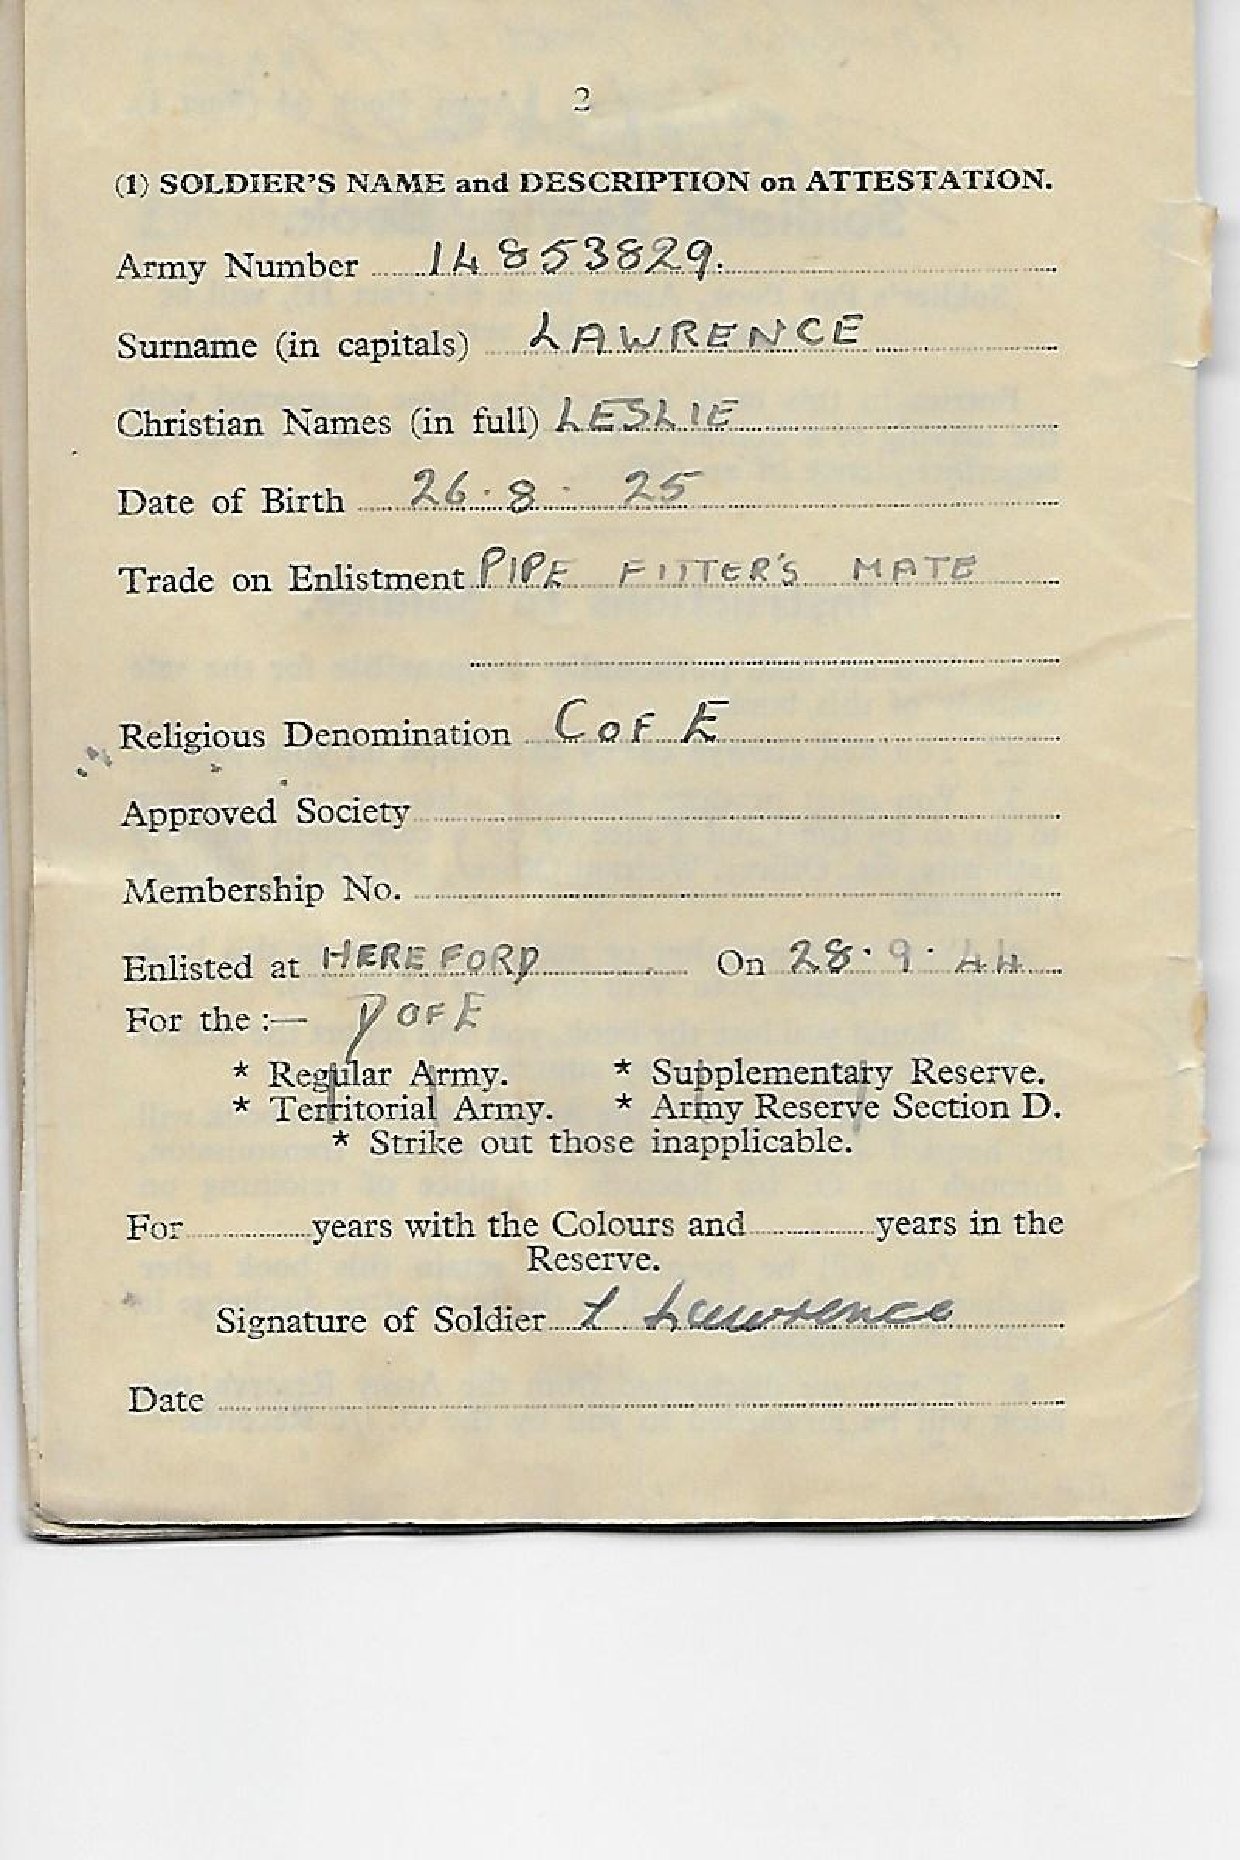 2
(1) SOLDIER'S NAME and DESCRIPTION on ATTESTATION.
Army Number 14853829.
Surname (in capitals) LAWRENCE
Christian Names (in full) LESLIE
Date of Birth 26.8.25
Trade on Enlistment PIPE FITTER'S MATE
Religious Denomination C OF E
Approved Society
Membership No.
Enlisted at HEREFORD On 28.9.44
For the :— D OF E
* Regular Army. * Supplementary Reserve.
* Territorial Army. * Army Reserve Section D.
* Strike out those inapplicable.
For years with the Colours and years in the
Reserve.
Signature of Soldier L Lawrence
Date